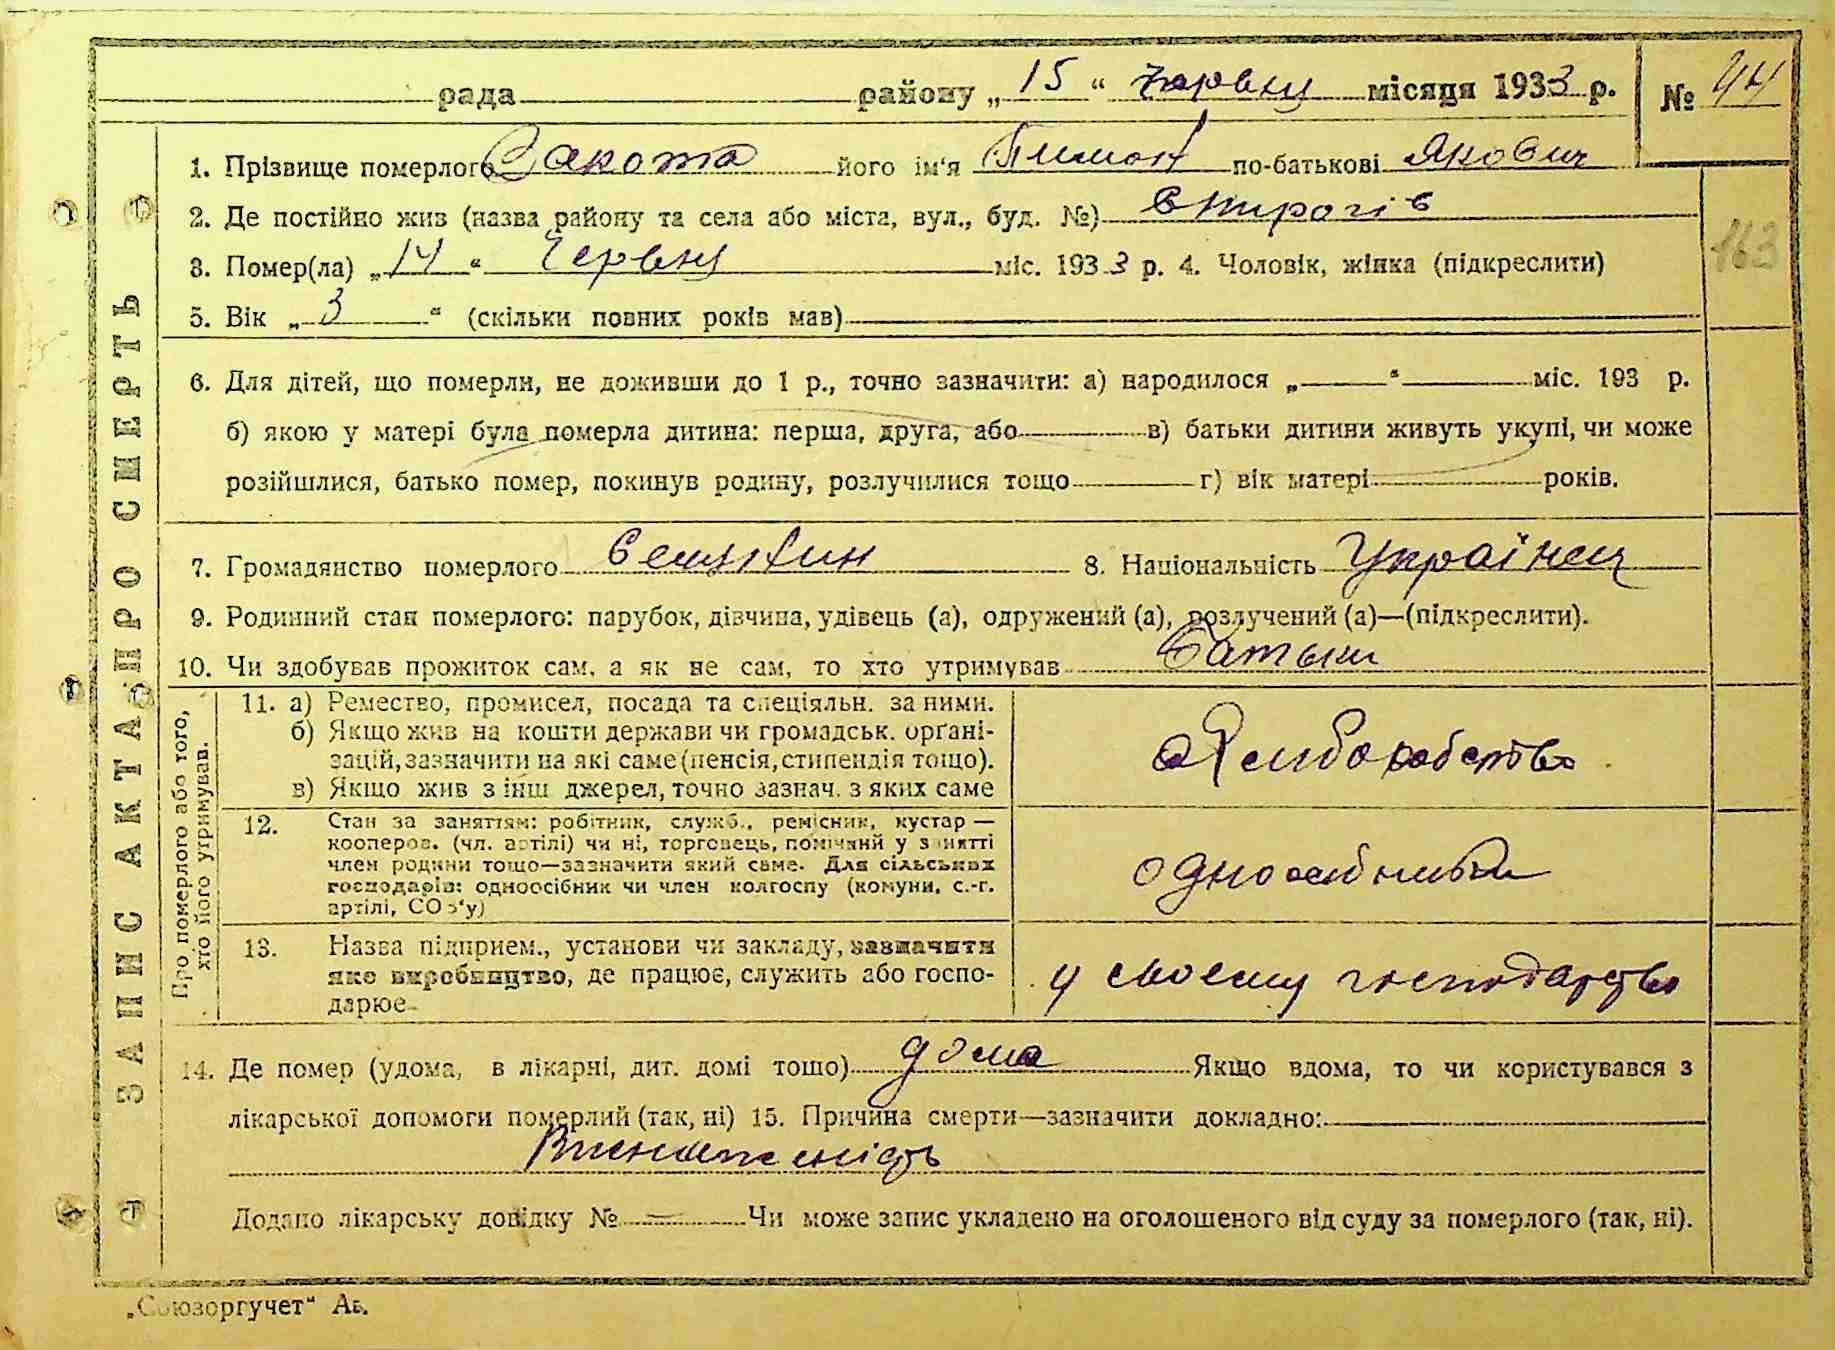 рада районy „15“ червня місяця 1933 р. № 44
1. Прізвище померлого Сакота його ім'я Тимош по-батькові Якович
2. Де постійно жив (назва району та села або міста, вул., буд. №) с Пирогів
3. Помер(ла) „14“ Червня міс. 1933 р. 4. Чоловік, жінка (підкреслити)
163
5. Вік „3“ (скільки повних років мав)
6. Для дітей, що померли, не доживши до 1 р., точно зазначити: а) народилося „—“ міс. 193 р.
б) якою у матері була померла дитина: перша, друга, або в) батьки дитини живуть укупі, чи може
розійшлися, батько помер, покинув родину, розлучилися тощо г) вік матері років.
7. Громадянство померлого 8. Національність Українец
9. Родинний стан померлого: парубок, дівчина, удівець (а), одружений (а), розлучений (а)—(підкреслити).
10. Чи здобував прожиток сам, а як не сам, то хто утримував Батьки
ЗАПИС АКТА ПРО СМЕРТЬ
Про померлого або того, хто його утримував.
11. а) Ремество, промисел, посада та спеціяльн. за ними.
б) Якщо жив на кошти держави чи громадськ. орґані-
зацій, зазначити на які саме (пенсія, стипендія тощо).
в) Якщо жив з інш джерел, точно зазнач. з яких саме
12. Стан за заняттям: робітник, служб., ремісник, кустар —
кооперов. (чл. артілі) чи ні, торговець, помічний у занятті
член родини тощо—зазначити який саме. Для сільських
господарів: одноосібник чи член колгоспу (комуни, с.-г.
артілі, СОЗ'у)
одноосібники
13. Назва підприєм., установи чи закладу, зазначити
яке виробництво, де працює, служить або госпо-
дарює
у своєму господарстві
14. Де помер (удома, в лікарні, дит. домі тощо) дома Якщо вдома, то чи користувався з
лікарської допомоги померлий (так, ні) 15. Причина смерти—зазначити докладно:
Виснаженість
Додано лікарську довідку № — Чи може запис укладено на оголошеного від суду за померлого (так, ні).
„Союзоргучет“ Ав.